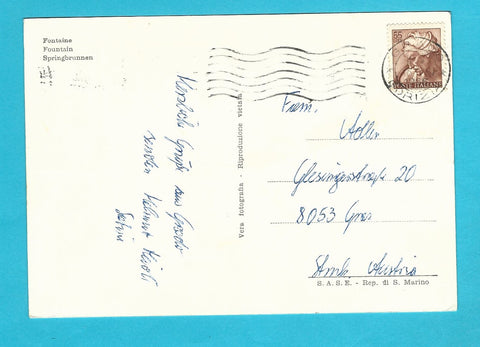 Fontaine
Fountain
Springbrunnen
65
POSTE ITALIANE
Herzliche Grüße aus Grado
senden Helmut
Vera fotografia - Riproduzione vietata
Fam.
Adler
20
8053 Graz
Stmk. Austria
S. A. S. E. - Rep. di S. Marino